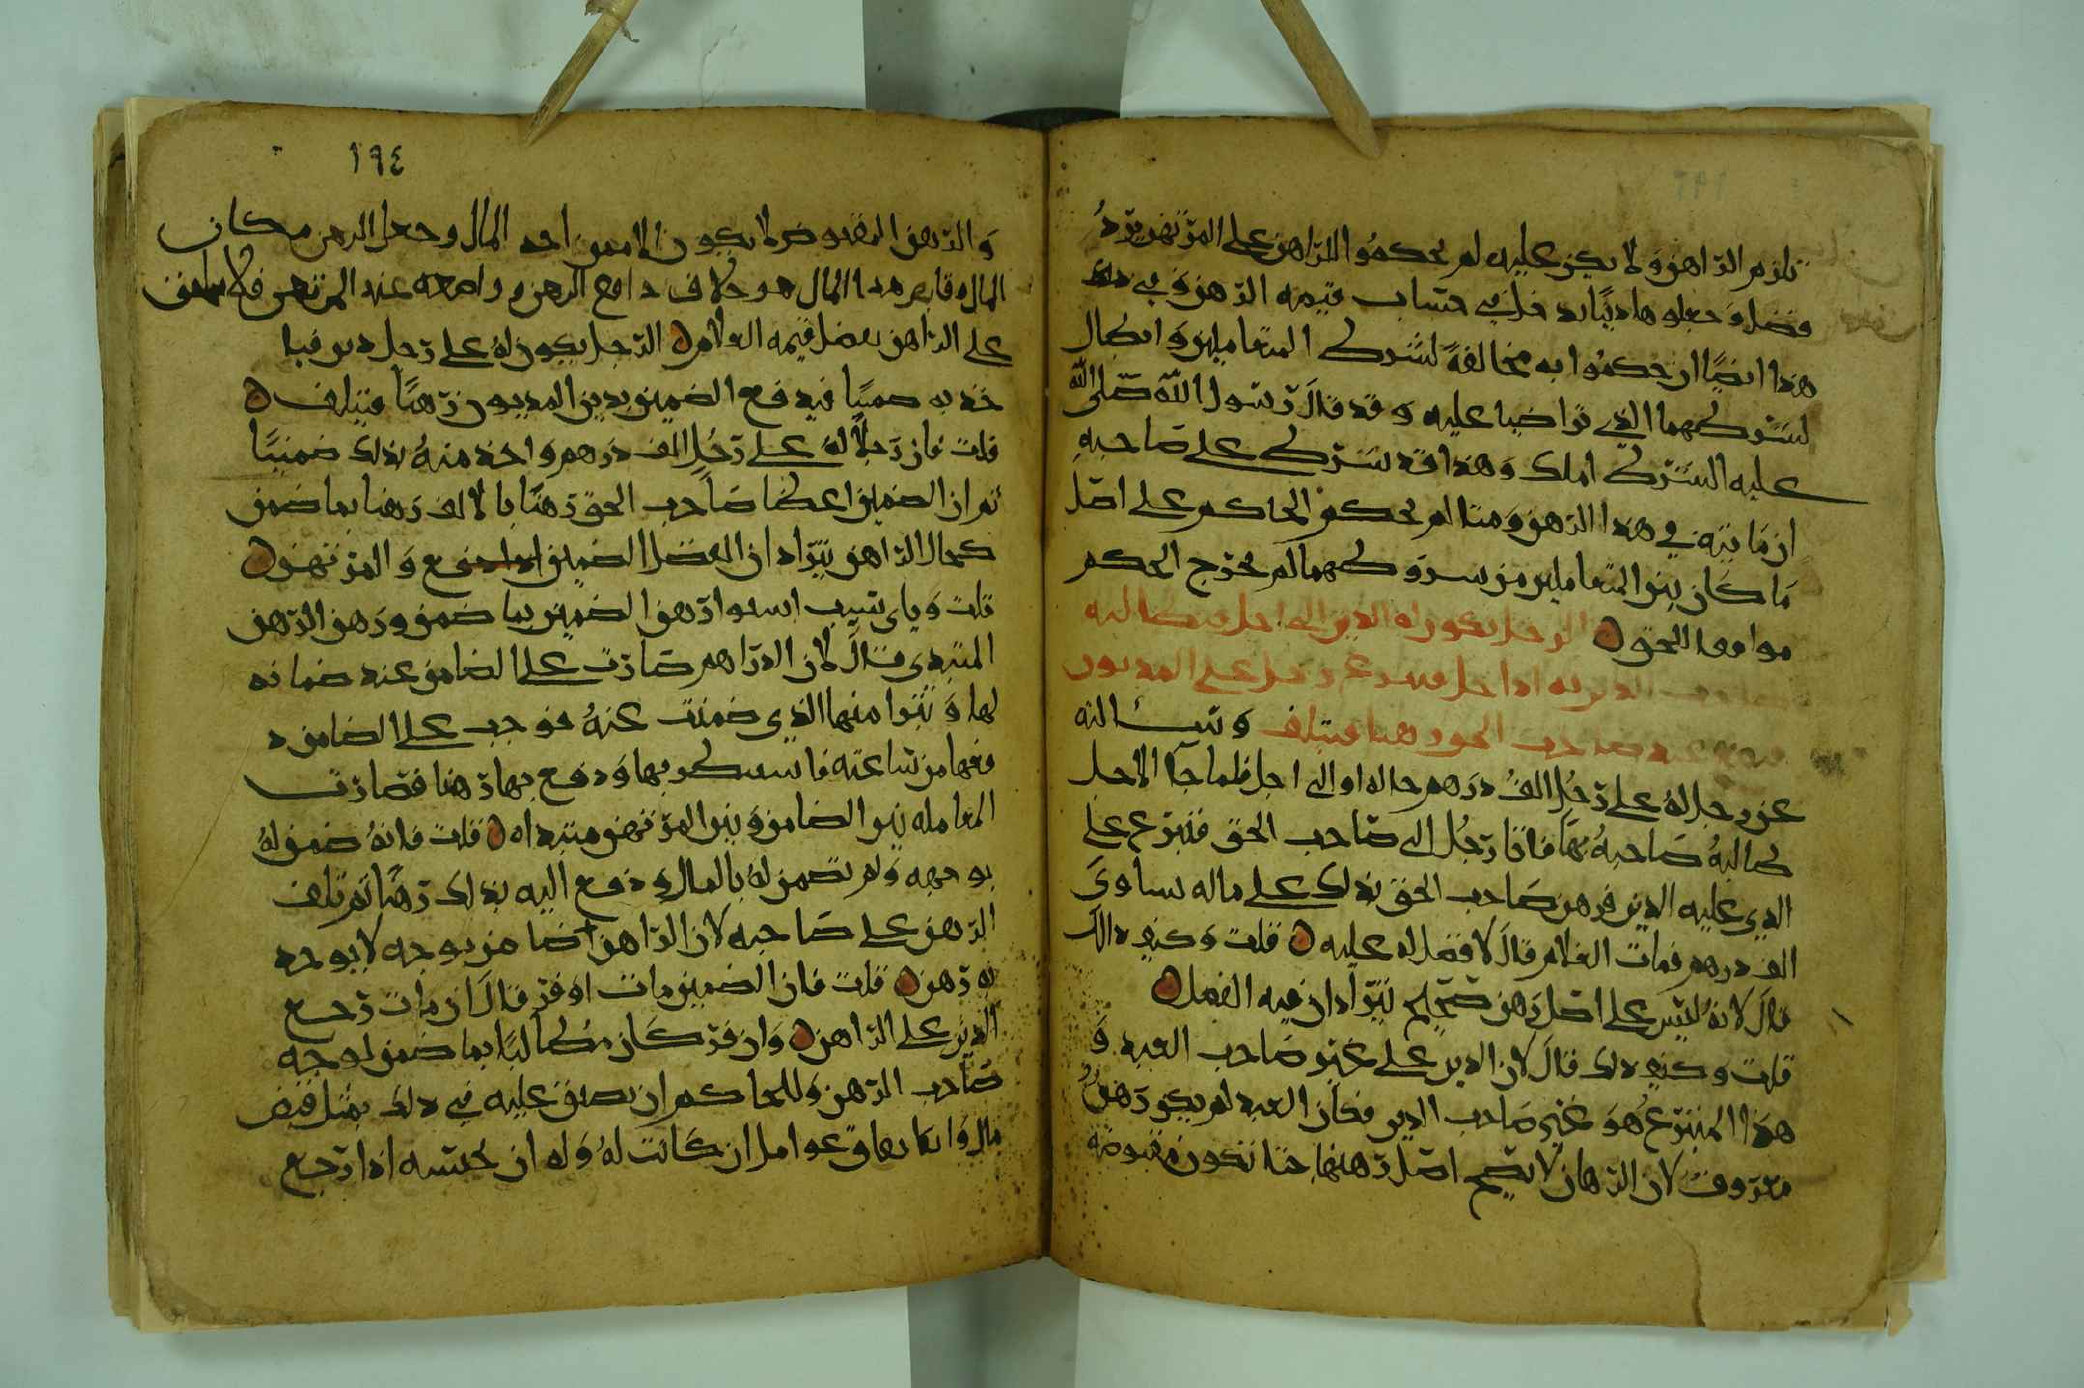 تلزم الراهن ولا يكن عليه لم يحكموا للراهن على المرتهن برد
فضل وجعلوها دينا بدخل في حساب قيمه الرهن وفي ذلك
هذا ايضا ان حكموا به مخالفة لشرط المتعاملين وابطال
لشرطهما الذي تراضيا عليه وقد قال رسول الله صلى الله
عليه الشرط املك وهذا قد شرط على صاحبه
ان ما بينه في هذا الرهن ومتا لم يحكم الحاكم على اصل
ما كان بين المتعاملين من شروطهما لم يخرج الحكم
موافقا للحق الرجل يكون له الدين الى اجل فيطالبه
صاحب الدين به اذا حل فيتبرع رجل على المديون
فيرهن عند صاحب الحق رهنا فيتلف وسالته
عن رجل له على رجل الف درهم حاله او الى اجل فلما جا الاجل
طالبه صاحبه بها فاتا رجل الى صاحب الحق فتبرع على
الذي عليه الدين فرهن صاحب الحق بذلك على ماله يساوي
الف درهم فمات الغلام قال لا فضل له عليه قلت وكيف ذلك
قال لانه ليس على اصل رهن صحيح يترادان فيه الفضل
قلت وكيف ذلك قال لان الدين على غير صاحب العبد و
هذا المتبرع هو غير صاحب الدين فكان العبد لم يكن رهن
معروف لان الرهان لا يصح اصل رهنها حتا تكون مقبوضة
١٩٤
والرهن المقبوض لا يكون الا ممن اخذ المال وجعل الرهن مكان
المال وقابض هذا المال هو خلاف دافع الرهن وواضعه عند المرتهن فلا
على الراهن بفضل قيمه الغلام الرجل يكون له على رجل دين فيا
خذ به ضمينا فيدفع الضمين بدين المديون رهنا فيتلف
قلت فان رجلا له على رجل الف درهم واخذ منه بذلك ضمينا
ثم ان الضمين اعطا صاحب الحق رهنا بالالف رهنا بما ضمن
كحال الراهن يترادان الفضل الضمين والمرتهن
قلت وباي سبب استوا رهن الضمين بما ضمن ورهن الرهن
المبتدي قال لان الدراهم صارت على الضامن عند ضمانه
لها وتبرا منها الذي ضمنت عنه فوجب على الضامن د
فعها من ساعته فاستعطو بها ودفع بها رهنا فصارت
المعامله بين الضامن وبين المرتهن مبتداه قلت فانه ضمن له
بوجهه ولم تضمن له بالمال ودفع اليه بذلك رهنا ثم تلف
الرهن على صاحبه لان الراهن ضامن بوجه لا يوخذ
به رهن قلت فان الضمين مات او فر قال ان مات رجع
الدين على الراهن وان فر كان مطالبا بما ضمن لوجه
صاحب الرهن وللحاكم ان يضيق عليه في ذلك بمثل قبض
مال وانكا بعاق عوامل ان كانت له وله ان يحبسه اذا رجع